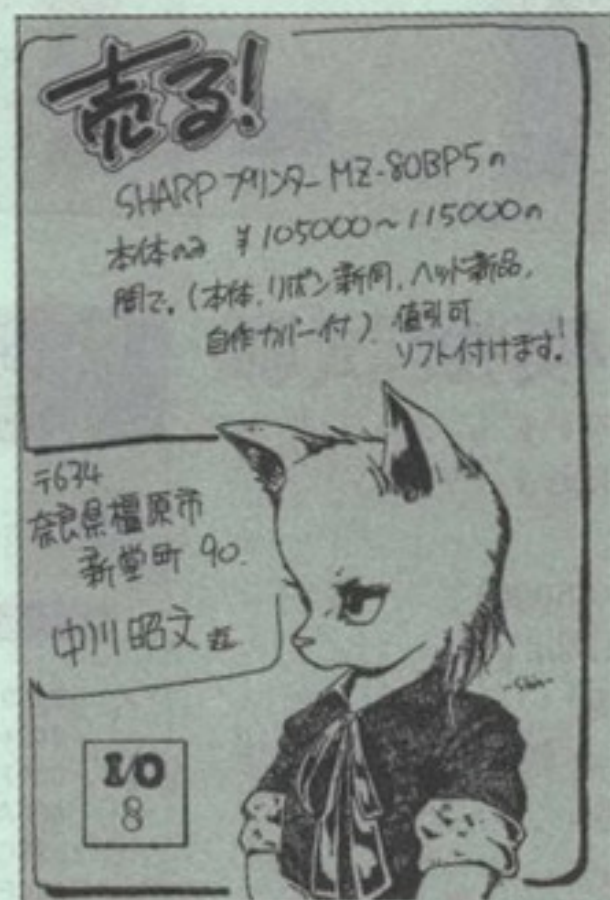 売る!
SHARP プリンター MZ-80BP5の
本体のみ ¥105000〜115000の
間で。(本体、リボン新同、ヘッド新品、
自作カバー付) 値引可
ソフト付けます!
〒634
奈良県橿原市
新堂町 90.
中川昭文
-Shin-
I/O
8